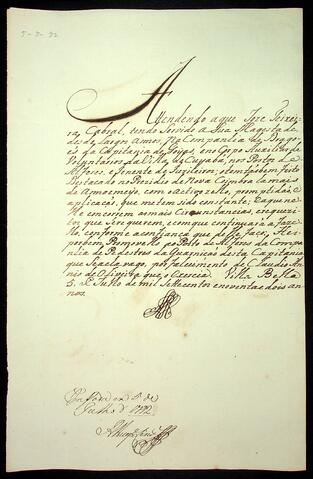 5-7-92
Attendendo aque Joze Teixei-
ra Cabral, tendo servido a Sua Magestade
desde largos annos, na Companhia de
da Capitania de Goyaz, e no Corpo Auxiliar de
Voluntarios da Villa de Cuyabá, nos Postos de
Alferes, e Tenente de Fuzileiros; etambem feito
Destacado no Prezidio de Nova Coimbra amais
de com actividade, promptidaõ, e
aplicaçaõ, que metem sido constante; e aque na-
lle concorrem as mais circunstancias, erequizi-
tos que sere querem, ecomque continuará a faze-
llo, conforme aconfiança que delle faço; Hei
porbem Promovello ao Posto de Alferes da Compa-
nhia de Pedestres da Guarniçaõ desta Capitania
que seacha vago, por falecimento de Claudio An-
nes de Oliveira que o exercia. Villa Bella
5 de Julho de mil settecentos enoventa e dois an-
nos.
em 5 de
Julho de 1792